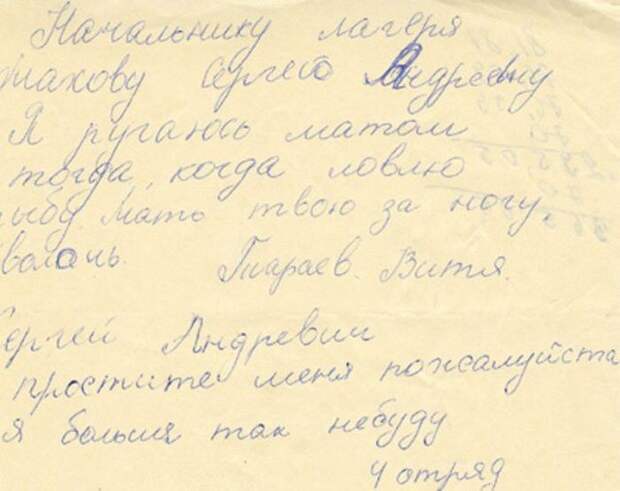 Начальнику лагеря
махову Сергею Андреевну
Я ругаюсь матом
тогда, когда ловлю
рыбу. Мать твою за ногу,
волочь. Тиараев. Витя.
Сергей Андревич
простите меня пожалуйста
я больше так небуду
4 отряд